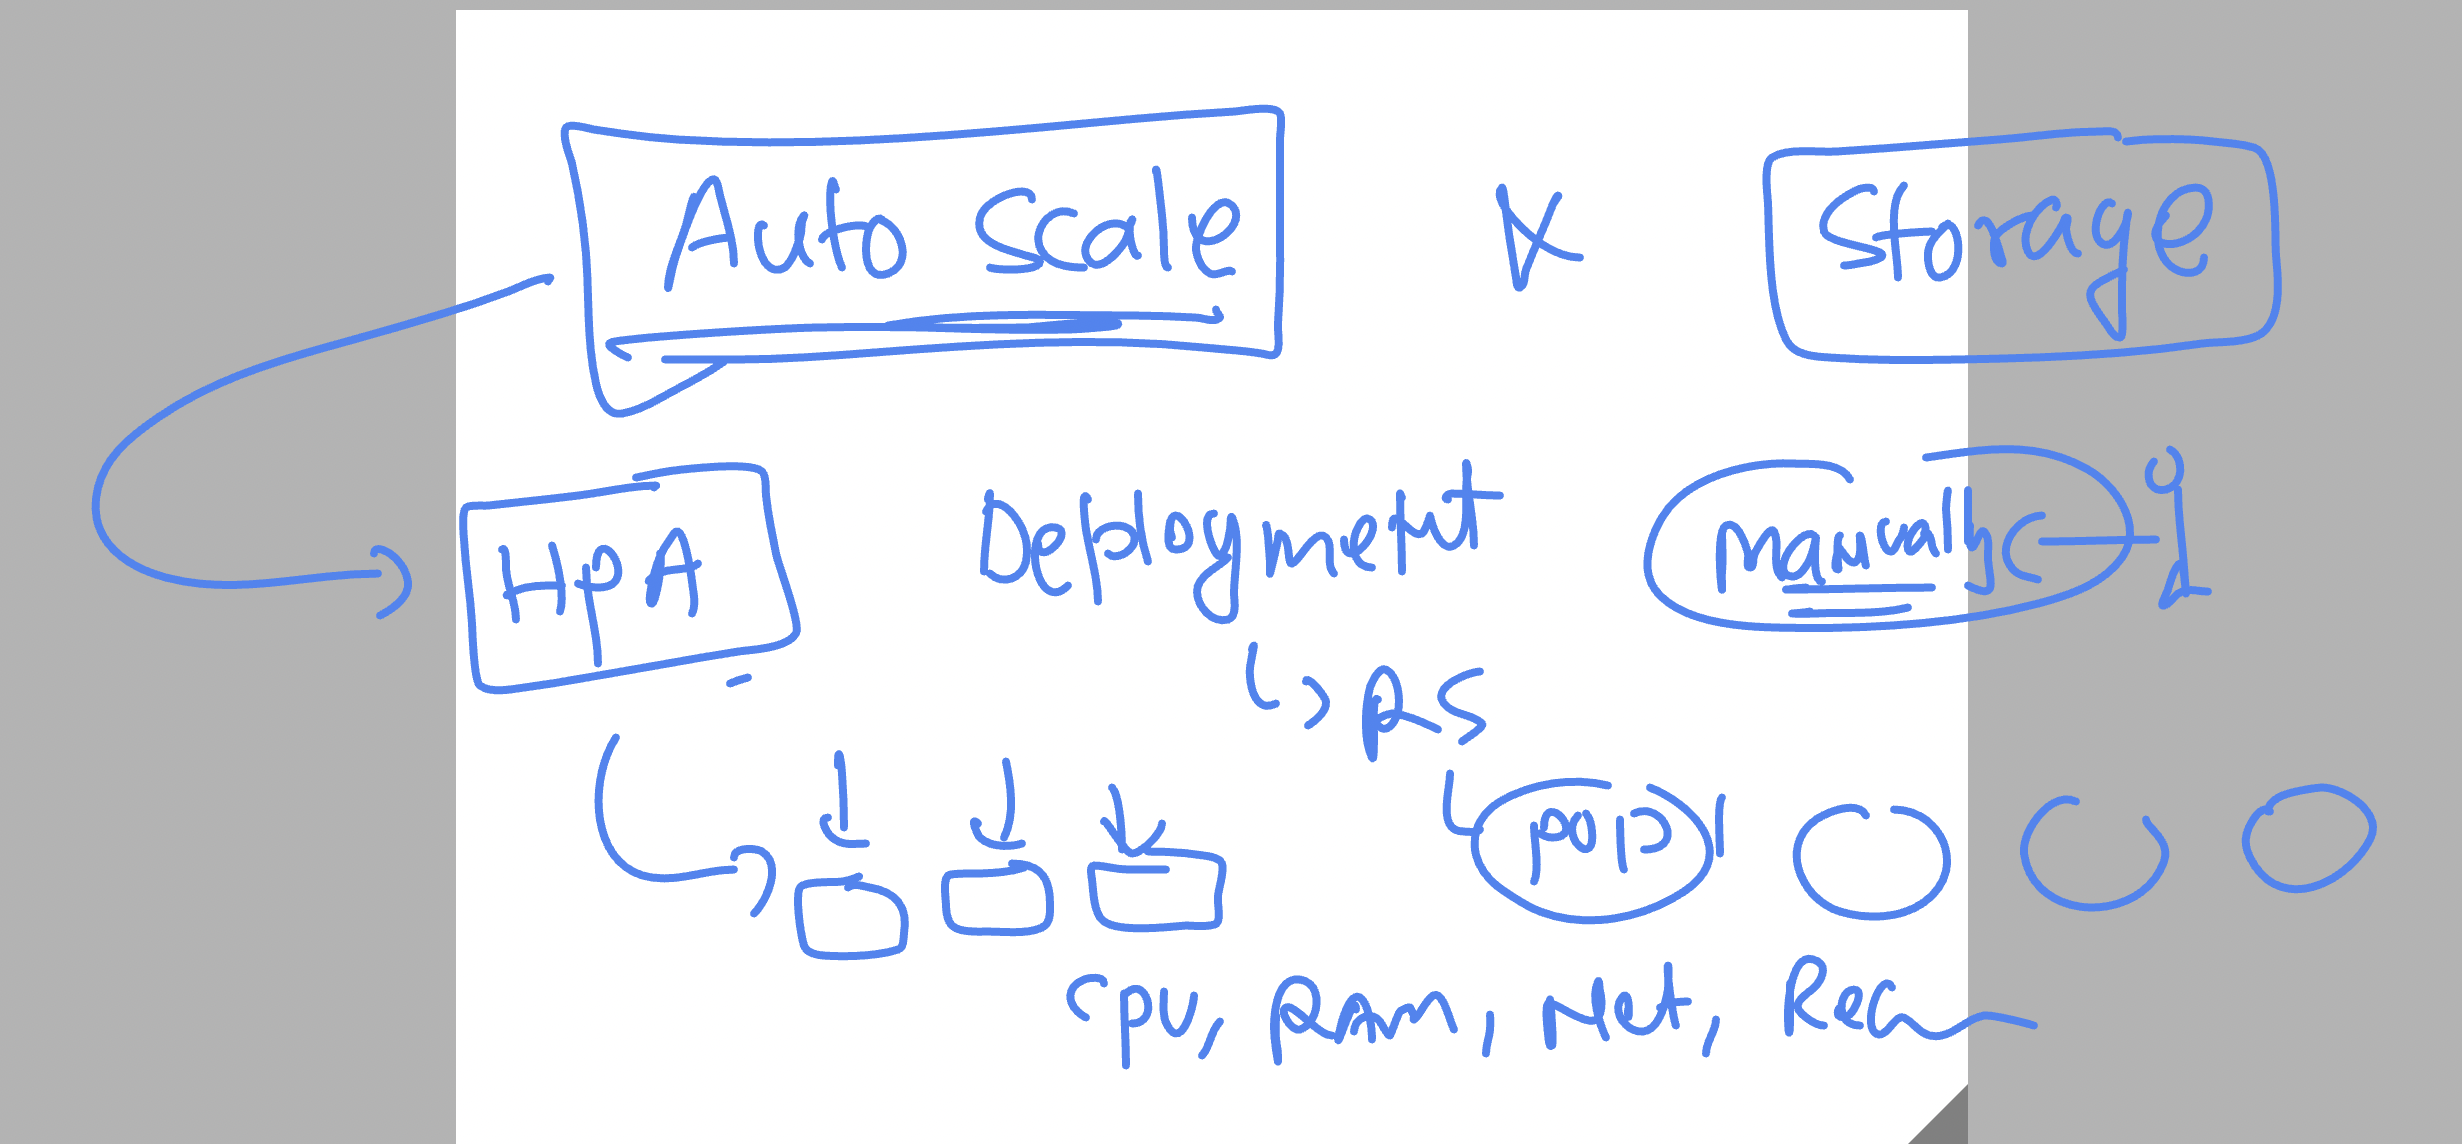 Auto Scale X Storage
HPA Deployment manually
RS
POD
CPU, Ram, Net, Rec